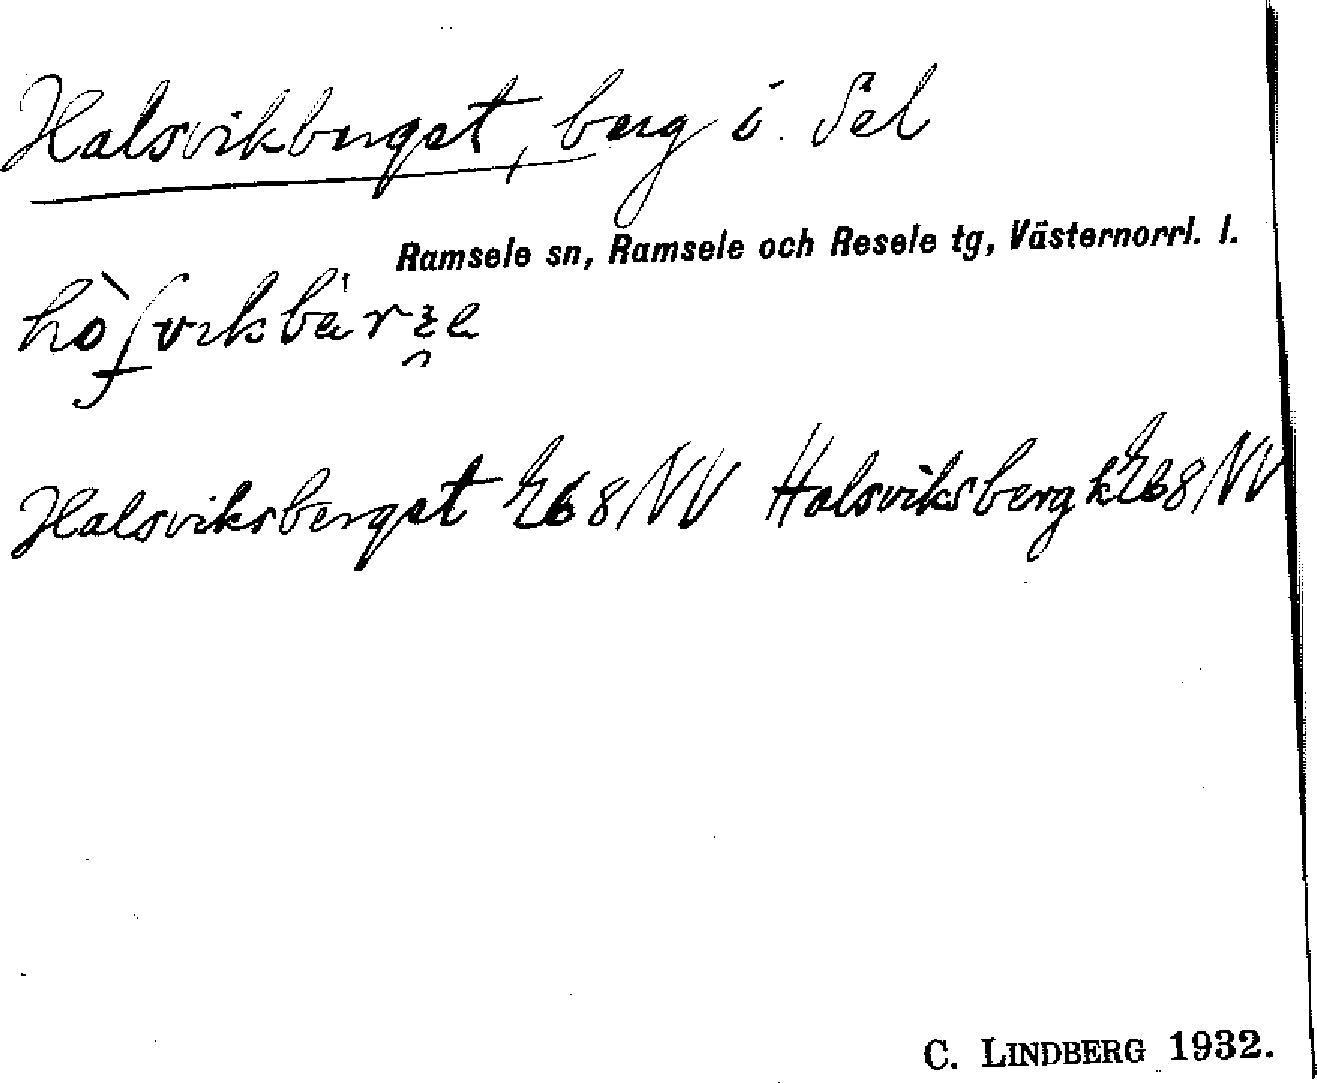 Halsvikberget, berg i Sel
Ramsele sn, Ramsele och Resele tg, Västernorrl. l.
Halsviksberget 68 NV Halsviksberg k 68 NV
C. LINDBERG 1932.